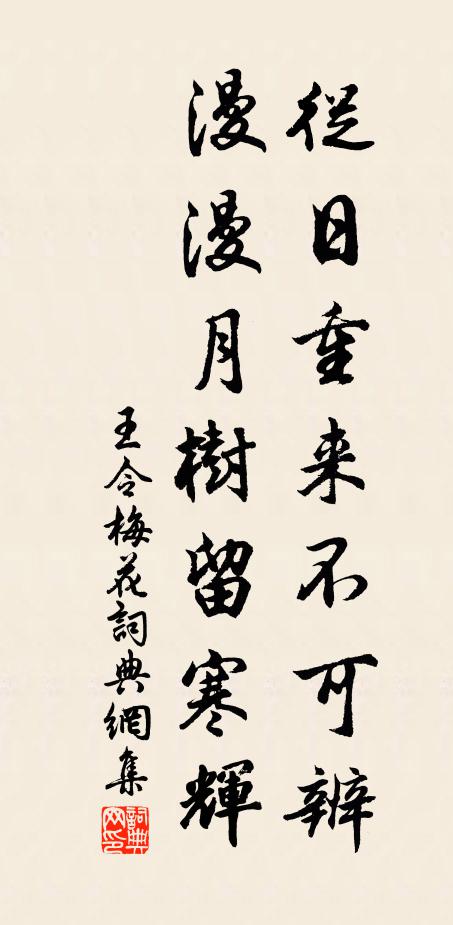 從日重来不可辨
漫漫月樹留寒輝
王令梅花詞典網集
詞典網印